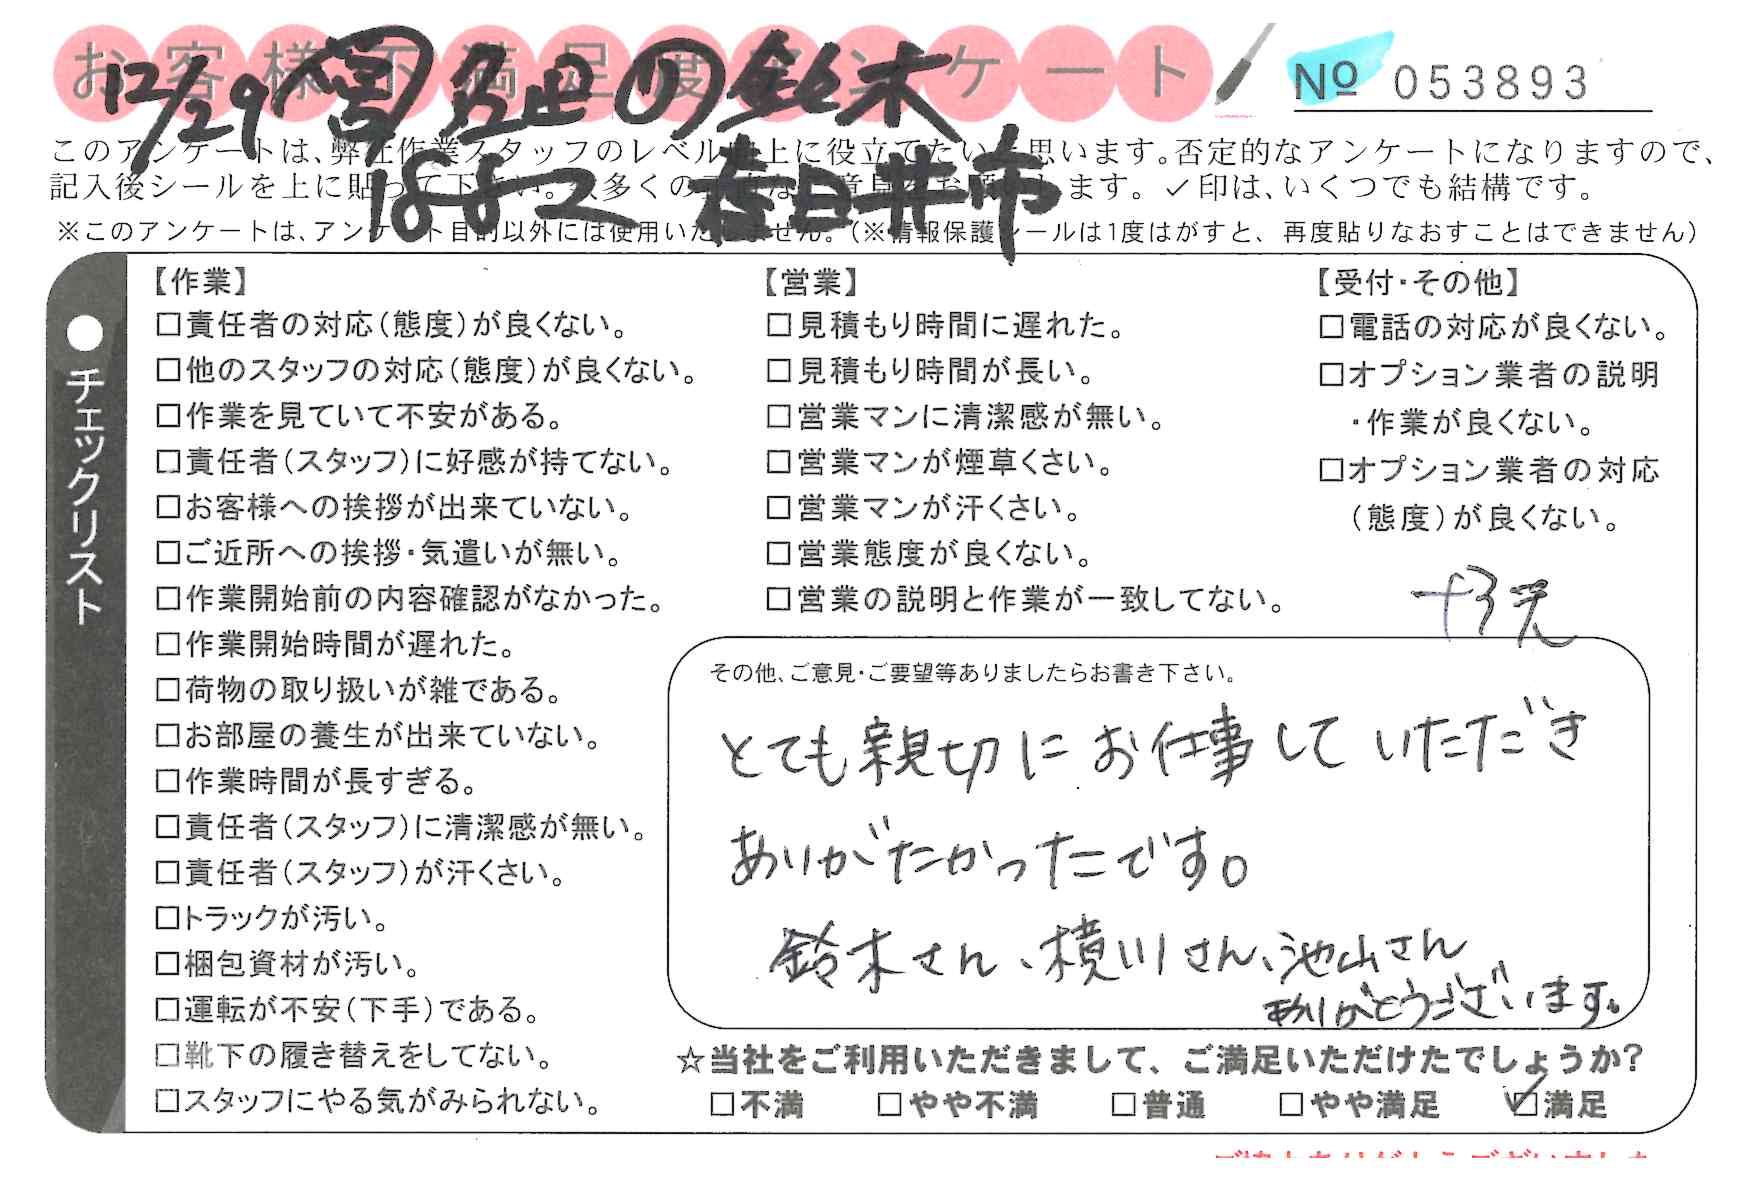 お客様不満足度アンケート
№ 053893
12/29 の鈴木
1882 春日井市
このアンケートは、弊社作業スタッフのレベル向上に役立てたいと思います。否定的なアンケートになりますので、
記入後シールを上に貼って下さい。数多くの正直なご意見をお願いします。✓印は、いくつでも結構です。
※このアンケートは、アンケート目的以外には使用いたしません。(※情報保護シールは1度はがすと、再度貼りなおすことはできません)
●チェックリスト
【作業】
□責任者の対応(態度)が良くない。
□他のスタッフの対応(態度)が良くない。
□作業を見ていて不安がある。
□責任者(スタッフ)に好感が持てない。
□お客様への挨拶が出来ていない。
□ご近所への挨拶・気遣いが無い。
□作業開始前の内容確認がなかった。
□作業開始時間が遅れた。
□荷物の取り扱いが雑である。
□お部屋の養生が出来ていない。
□作業時間が長すぎる。
□責任者(スタッフ)に清潔感が無い。
□責任者(スタッフ)が汗くさい。
□トラックが汚い。
□梱包資材が汚い。
□運転が不安(下手)である。
□靴下の履き替えをしてない。
□スタッフにやる気がみられない。
【営業】
□見積もり時間に遅れた。
□見積もり時間が長い。
□営業マンに清潔感が無い。
□営業マンが煙草くさい。
□営業マンが汗くさい。
□営業態度が良くない。
□営業の説明と作業が一致してない。
【受付・その他】
□電話の対応が良くない。
□オプション業者の説明
・作業が良くない。
□オプション業者の対応
(態度)が良くない。
その他、ご意見・ご要望等ありましたらお書き下さい。
とても親切にお仕事していただき
ありがたかったです。
鈴木さん、横川さん、池山さん
ありがとうございます。
☆当社をご利用いただきまして、ご満足いただけたでしょうか?
□不満 □やや不満 □普通 □やや満足 ☑満足